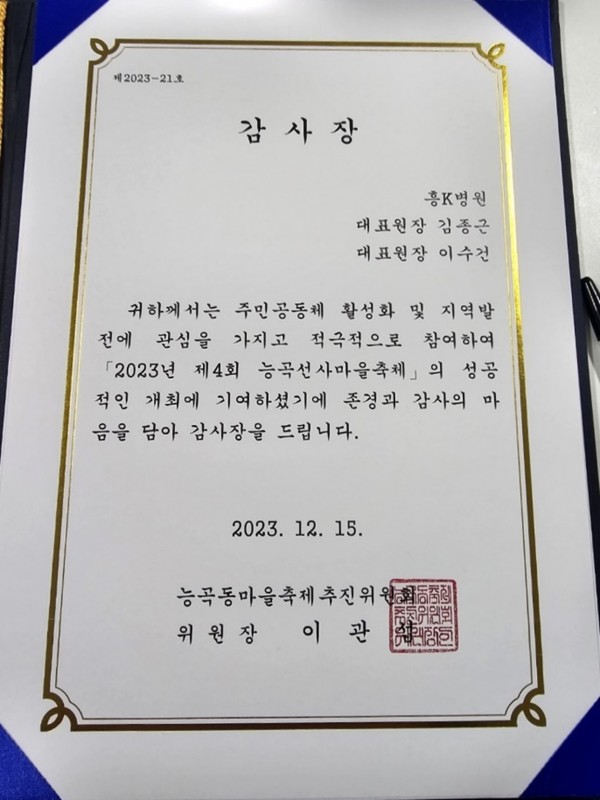 제2023-21호
감 사 장
흥K병원
대표원장 김종근
대표원장 이수건
귀하께서는 주민공동체 활성화 및 지역발
전에 관심을 가지고 적극적으로 참여하여
「2023년 제4회 능곡선사마을축제」의 성공
적인 개최에 기여하셨기에 존경과 감사의 마
음을 담아 감사장을 드립니다.
2023. 12. 15.
능곡동마을축제추진위원회
위 원 장 이 관 섭